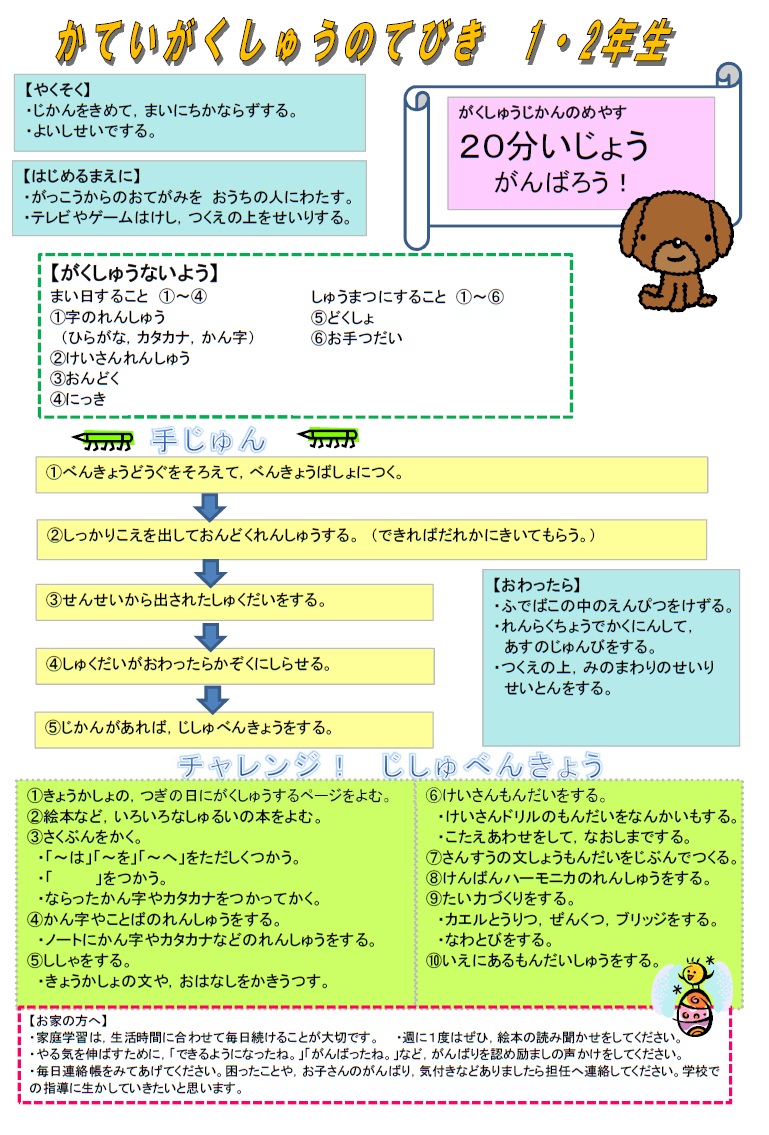 かていがくしゅうのてびき　1・2年生
【やくそく】
・じかんをきめて，まいにちかならずする。
・よいしせいでする。
がくしゅうじかんのめやす
２０分いじょう
がんばろう！
【はじめるまえに】
・がっこうからのおてがみを　おうちの人にわたす。
・テレビやゲームはけし，つくえの上をせいりする。
【がくしゅうないよう】
まい日すること　①～④
①字のれんしゅう
（ひらがな，カタカナ，かん字）
②けいさんれんしゅう
③おんどく
④にっき
しゅうまつにすること　①～⑥
⑤どくしょ
⑥お手つだい
手じゅん
①べんきょうどうぐをそろえて，べんきょうばしょにつく。
②しっかりこえを出しておんどくれんしゅうする。（できればだれかにきいてもらう。）
③せんせいから出されたしゅくだいをする。
④しゅくだいがおわったらかぞくにしらせる。
⑤じかんがあれば，じしゅべんきょうをする。
【おわったら】
・ふでばこの中のえんぴつをけずる。
・れんらくちょうでかくにんして，
あすのじゅんびをする。
・つくえの上，みのまわりのせいり
せいとんをする。
チャレンジ！　じしゅべんきょう
①きょうかしょの，つぎの日にがくしゅうするページをよむ。
②絵本など，いろいろなしゅるいの本をよむ。
③さくぶんをかく。
・「～は」「～を」「～へ」をただしくつかう。
・「　　　」をつかう。
・ならったかん字やカタカナをつかってかく。
④かん字やことばのれんしゅうをする。
・ノートにかん字やカタカナなどのれんしゅうをする。
⑤ししゃをする。
・きょうかしょの文や，おはなしをかきうつす。
⑥けいさんもんだいをする。
・けいさんドリルのもんだいをなんかいもする。
・こたえあわせをして，なおしまでする。
⑦さんすうの文しょうもんだいをじぶんでつくる。
⑧けんばんハーモニカのれんしゅうをする。
⑨たい力づくりをする。
・カエルとうりつ，ぜんくつ，ブリッジをする。
・なわとびをする。
⑩いえにあるもんだいしゅうをする。
【お家の方へ】
・家庭学習は，生活時間に合わせて毎日続けることが大切です。　・週に１度はぜひ，絵本の読み聞かせをしてください。
・やる気を伸ばすために，「できるようになったね。」「がんばったね。」など，がんばりを認め励ましの声かけをしてください。
・毎日連絡帳をみてあげてください。困ったことや，お子さんのがんばり，気付きなどありましたら担任へ連絡してください。学校で
の指導に生かしていきたいと思います。